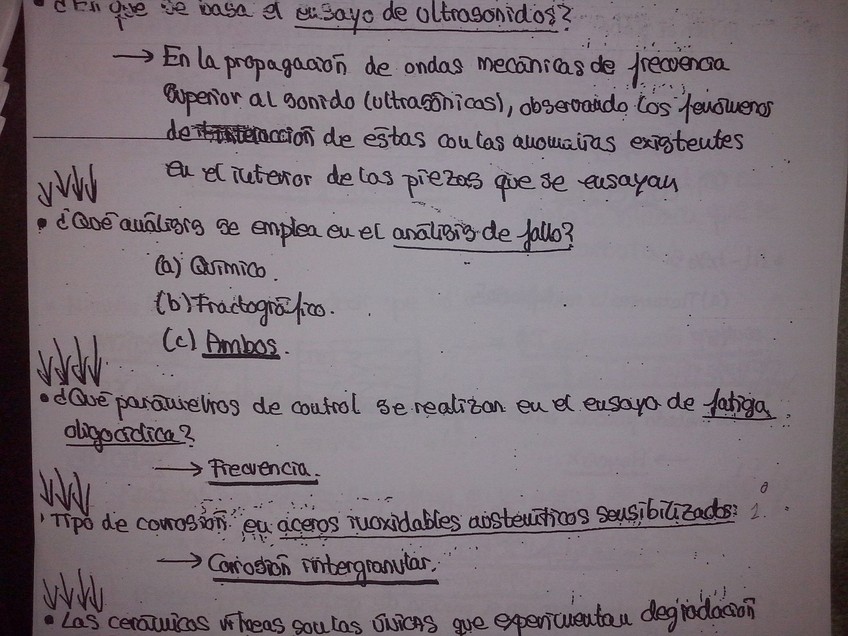 • ¿En que se basa el ensayo de ultrasonidos?
→ En la propagación de ondas mecánicas de frecuencia
superior al sonido (ultrasónicos), observando los fenómenos
de interacción de estas con las anomalías existentes
en el interior de las piezas que se ensayan
• ¿Qué análisis se emplea en el análisis de fallo?
(a) Químico.
(b) Fractográfico.
(c) Ambos.
• ¿Qué parámetros de control se realizan en el ensayo de fatiga
oligocíclica?
→ Frecuencia.
Tipo de corrosión en aceros inoxidables austeníticos sensibilizados:
→ Corrosión intergranular.
• Las cerámicas vítreas son las únicas que experimentan degradación